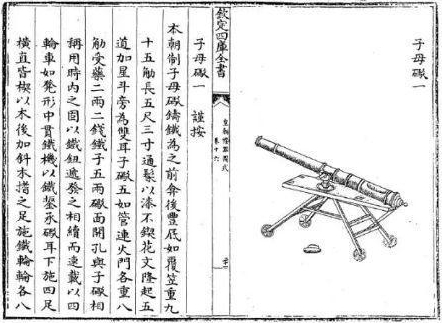 子母礟一
欽定四庫全書
皇朝禮器圖式
卷十六
子母礟一　謹按
本朝制子母礟鑄鐵為之前弇後豐底如覆笠重九
十五觔長五尺三寸通髹以漆不鍥花文隆起五
道加星斗旁為雙耳子礟五如管連火門各重八
觔受藥二兩二錢鐵子五兩礟面開孔與子礟相
稱用時內之固以鐵鈕遞發之相續而速載以四
輪車如凳形中貫鐵機以鐵鋬承礟耳下施四足
橫直皆楔以木後加斜木撐之足施鐵輪輪各八